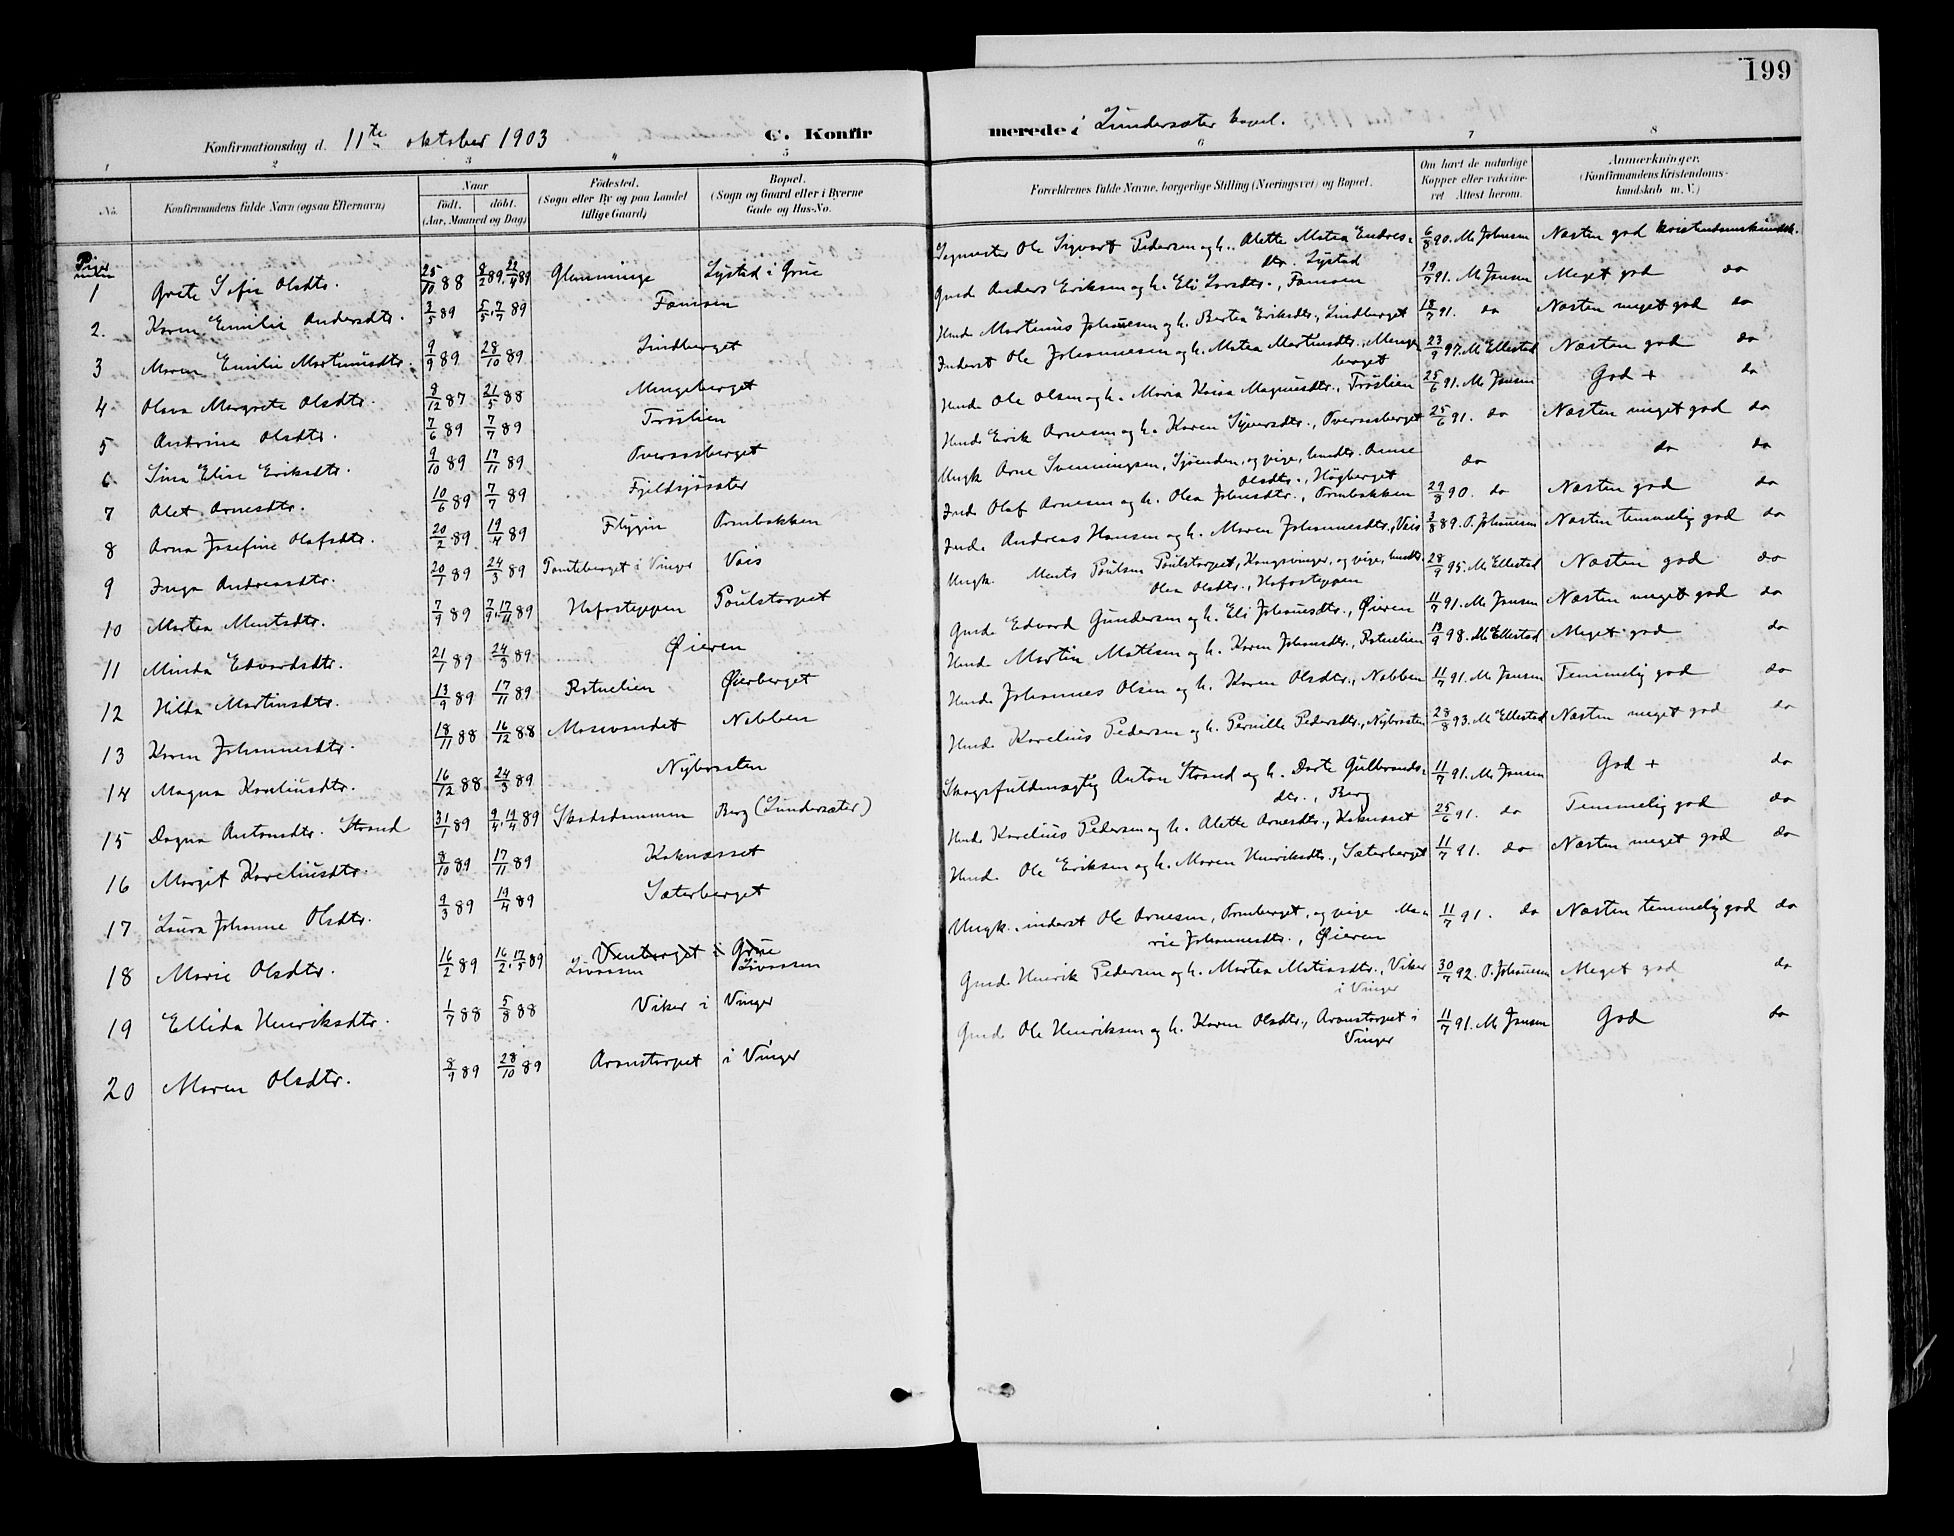 199
Konfirmationsdag d. 11te oktober 1903 C. Konfirmerede i Lundersæter kapel.
1 2 3 4 5 6 7 8
No. Konfirmandens fulde Navn (ogsaa Efternavn) Naar født. døbt. (Aar, Maaned og Dag) Fødested. (Sogn eller By og paa Landet tillige Gaard) Bopæl. (Sogn og Gaard eller i Byerne Gade og Hus-No. Forældrenes fulde Navne, borgerlige Stilling (Næringsvei) og Bopæl. Om havt de naturlige Kopper eller vakcineret Attest herom. Anmerkninger. (Konfirmandens Kristendomskundskab m. V.)
Piger
1 Grete Sofie Olsdtr. 25/10 88 8/2 89, 22/4 89 Glemminge Lystad i Grue Ole Sigvart Pedersen og h. Alette Matea Endresdtr. Lystad 6/8 90. M. Johnsen Næsten god kristendomskundsk.
2. Karen Emilie Andersdtr. 3/5 89 5/5, 7/7 89 Famoen Gmd Anders Eriksen og h. Eli Larsdtr., Famoen 19/7 91. M. Jensen Meget god do
3 Maren Emilie Martinusdtr. 9/9 89 28/10 89 Lindberget Hmd. Martinus Johnsen og h. Bertea Eriksdtr., Lindberget 18/7 91. do Næsten meget god do
4 Olava Margrete Olsdtr. 9/12 87 21/5 88 Mengeberget Inderst Ole Johannesen og h. Matea Martinsdtr., Mengeberget 23/9 97. M. Ellestad Næsten god do
5 Antrine Olsdtr. 7/6 89 7/7 89 Tröslien Hmd. Ole Olsen og h. Maria Kaisa Magnusdtr., Tröslien 25/6 91. M. Jensen God + do
6. Lina Elise Eriksdtr. 9/10 89 17/11 89 Overaasberget Hmd. Erik Arnesen og h. Karen Syversdtr., Overaasberget 25/6 91. do Næsten meget god do
7 Olet Arnesdtr. 10/6 89 7/7 89 Fjeldsjösæter Ungk. Arne Svenningsen, Sjøenden, og pige, hmdtr. Anne Olsdtr., Högberget do do do
8 Arna Josefine Olafsdtr. 20/2 89 19/4 89 Flygin Ormbakken Ind. Olaf Arnesen og h. Olea Johnsdtr., Ormbakken 29/8 90. do Næsten god do
9 Inga Andreasdtr. 20/1 89 24/3 89 Tomteberget i Vinger Vais Inds. Andreas Hansen og h. Maren Johannesdtr., Vais 3/8 89. O. Johnsen Næsten temmelig god do
10 Martea Mentsdtr. 7/9 89 7/9, 17/11 89 Hofosteppen Poulstorpet Ungk. Ments Poulsen Poulstorpet, Kongsvinger, og pige, hmdtr. Olea Olsdtr., Hofosteppen 28/9 95. M. Ellestad Næsten god do
11 Minda Edvardsdtr. 21/1 89 24/3 89 Øieren Gmd. Edvard Gundersen og h. Eli Johnsdtr., Øieren 11/7 91. M. Jensen Næsten meget god do
12 Hilda Martinsdtr. 13/9 89 17/11 89 Rotnelien Øierberget Hmd. Martin Matisen og h. Karen Johnsdtr., Rotnelien 19/9 98. M. Ellestad Meget god do
13 Karen Johannesdtr. 18/11 88 16/12 88 Mosevandet Nabben Hmd. Johannes Olsen og h. Karen Olsdtr., Nabben 11/7 91. M. Jensen Temmelig god do
14 Magna Kareliusdtr. 16/12 88 24/3 89 Nybraaten Hmd. Karelius Pedersen og h. Pernille Pedersdtr., Nybraaten 28/8 93. M. Ellestad Næsten meget god do
15 Dagna Antonsdtr. Strand 31/1 89 9/4, 19/4 89 Skadsdammen Berg (Lundersæter) Skogsfuldmægtig Anton Strand og h. Dorte Gulbrandsdtr., Berg 11/7 91. M. Jensen God + do
16 Margit Kareliusdtr. 8/10 89 17/11 89 Kaknæsset Hmd. Karelius Pedersen og h. Alette Arnesdtr., Kaknæset 25/6 91. do Temmelig god do
17 Laura Johanne Olsdtr. 9/3 89 19/4 89 Sæterberget Hmd. Ole Eriksen og h. Maren Henriksdtr., Sæterberget 11/7 91. do Næsten meget god do
18 Marie Olsdtr. 16/2 89 16/2, 17/5 89 Venberget i Grue Livaasen Livaasen Ungk. inderst Ole Arnesen, Ormberget, og pige Marie Johannesdtr., Øieren 11/7 91. do Næsten temmelig god do
19 Ellida Henriksdtr. 1/7 88 5/8 88 Viker i Vinger Gmd. Henrik Pedersen og h. Martea Matiasdtr., Viker i Vinger 30/7 92. O. Johnsen Meget god do
20 Maren Olsdtr. 8/9 89 28/10 89 Aronstorpet i Vinger Gmd. Ole Henriksen og h. Karen Olsdtr., Aronstorpet i Vinger 11/7 91. M. Jensen God do